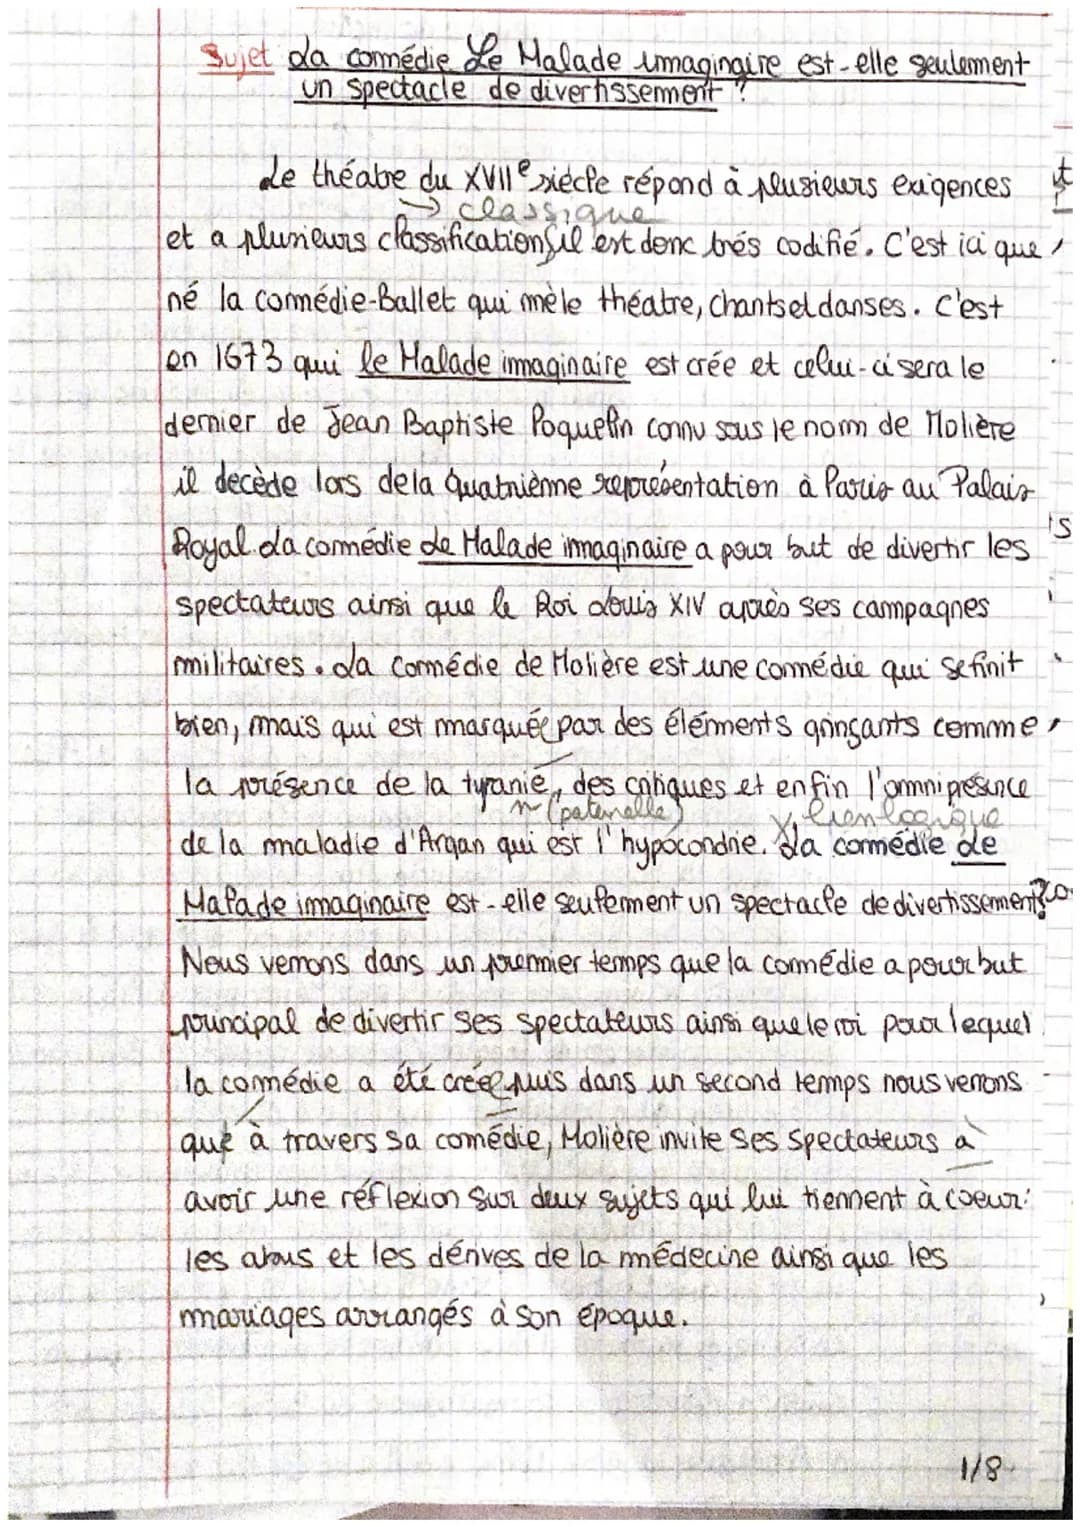 Sujet La comédie Le Malade imaginaire est-elle seulement
un spectacle de divertissement ?
Le théatre du XVIIe siècle répond à plusieurs exigences
→ classique
et a plusieurs classifications il est donc très codifié. C'est ici que
né la comédie-Ballet qui mèle théatre, chants et danses. C'est
en 1673 qui le Malade immaginaire est crée et celui-ci sera le
dernier de Jean Baptiste Poquelin connu sous le nom de Molière
il decède lors de la quatrième représentation à Paris au Palais
Royal. La comédie Le Malade imaginaire a pour but de divertir les
spectateurs ainsi que le Roi Louis XIV après ses campagnes
militaires. La comédie de Molière est une comédie qui se finit
bien, mais qui est marquée par des éléments grinçants comme
la présence de la tyranie, des critiques et enfin l'omniprésence
n (paternelle) lien logique
de la maladie d'Argan qui est l'hypocondrie. La comédie Le
Malade immaginaire est-elle seulement un spectacle de divertissement?
Nous verrons dans un premier temps que la comédie a pour but
principal de divertir ses spectateurs ainsi que le roi pour lequel
la comédie a été créée puis dans un second temps nous verrons
que à travers sa comédie, Molière invite ses spectateurs à
avoir une réflexion sur deux sujets qui lui tiennent à coeur:
les abus et les dérives de la médecine ainsi que les
mariages arrangés à son époque.
1/8